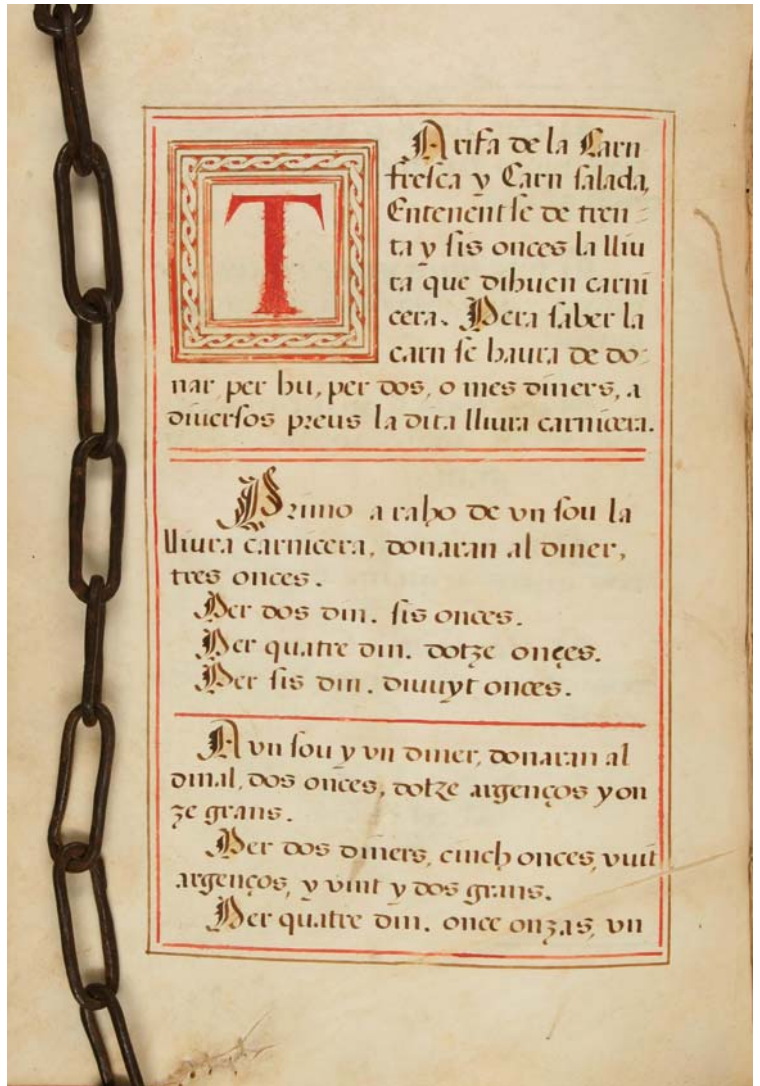 TArifa de la Carn
fresca y Carn salada,
Entenent se de tren=
ta y sis onces la lliu
ra que dihuen carni
cera. Pera saber la
carn se haura de do=
nar, per hu, per dos, o mes diners, a
diuersos preus la dita lliura carnicera.
Primo a raho de vn sou la
lliura carnicera, donaran al diner,
tres onces.
Per dos din. sis onces.
Per quatre din. dotze onçes.
Per sis din. diuuyt onces.
A vn sou y vn diner, donaran al
dinal, dos onces, dotze argenços y on
ze grans.
Per dos diners, cinch onces, vuit
argenços, y vint y dos grans.
Per quatre din. once onzas, vn